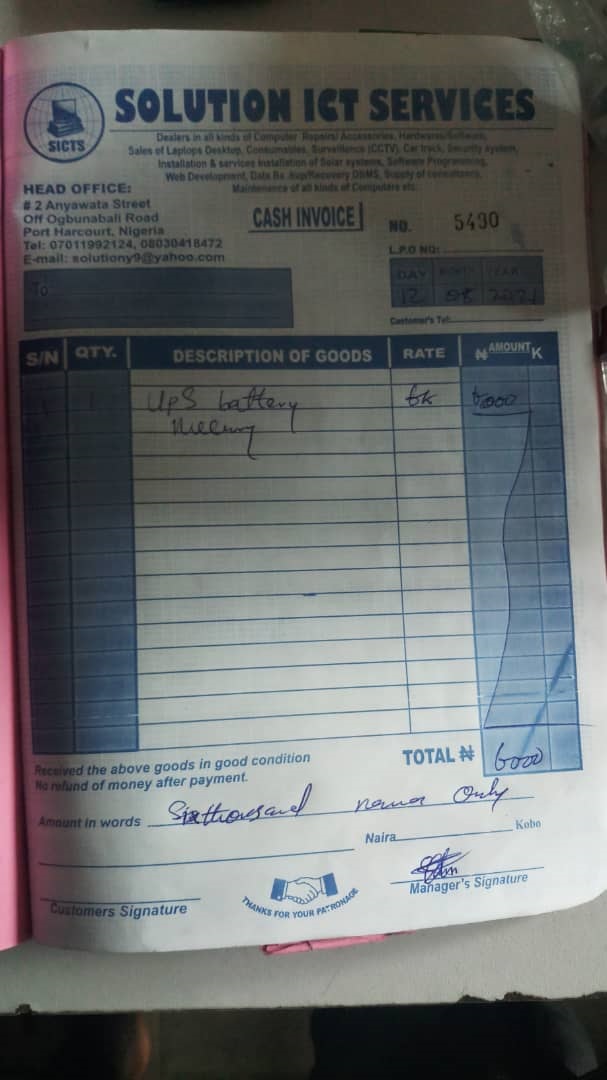 SOLUTION ICT SERVICES
SICTS
Dealers in all kinds of Computer Repairs/ Accessories, Hardwares/Software,
Sales of Laptops Desktop, Consumables, Surveillance (CCTV) Car track, Security system,
Installation & services Installation of Solar systems, Software Programming,
Web Development, Data Ba /Recovery DBMS, Supply of consultancy,
Maintenance of all kinds of Computers etc.
HEAD OFFICE:
# 2 Anyawata Street
Off Ogbunabali Road
Port Harcourt, Nigeria
Tel: 07011992124, 08030418472
E-mail: solutiony9@yahoo.com
CASH INVOICE
NO. 5490
L.P.O NO:
DAY MONTH YEAR
12 08 2021
To
Customer's Tel:
S/N QTY. DESCRIPTION OF GOODS RATE ₦ AMOUNT K
1 1 UPS battery 6k 6000
Mercury
Received the above goods in good condition
No refund of money after payment.
TOTAL ₦ 6000
Amount in words Six thousand naira Only
Naira Kobo
Customers Signature
THANKS FOR YOUR PATRONAGE
Manager's Signature